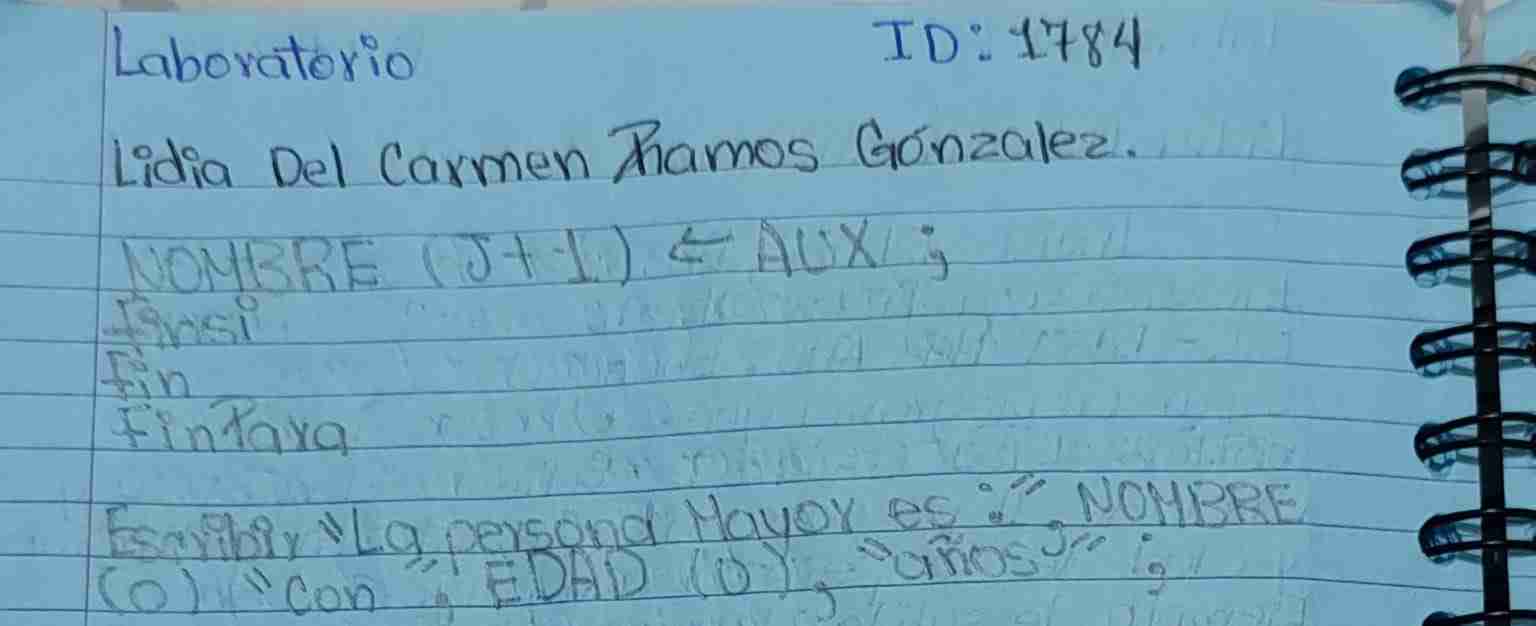 Laboratorio ID: 1784
Lidia Del Carmen Ramos Gónzalez.
NOMBRE (J+1) ← AUX ;
finsi
fin
FinPara
Escribir "La persona Mayor es :", NOMBRE
(0) "Con", EDAD (0), "años" ;